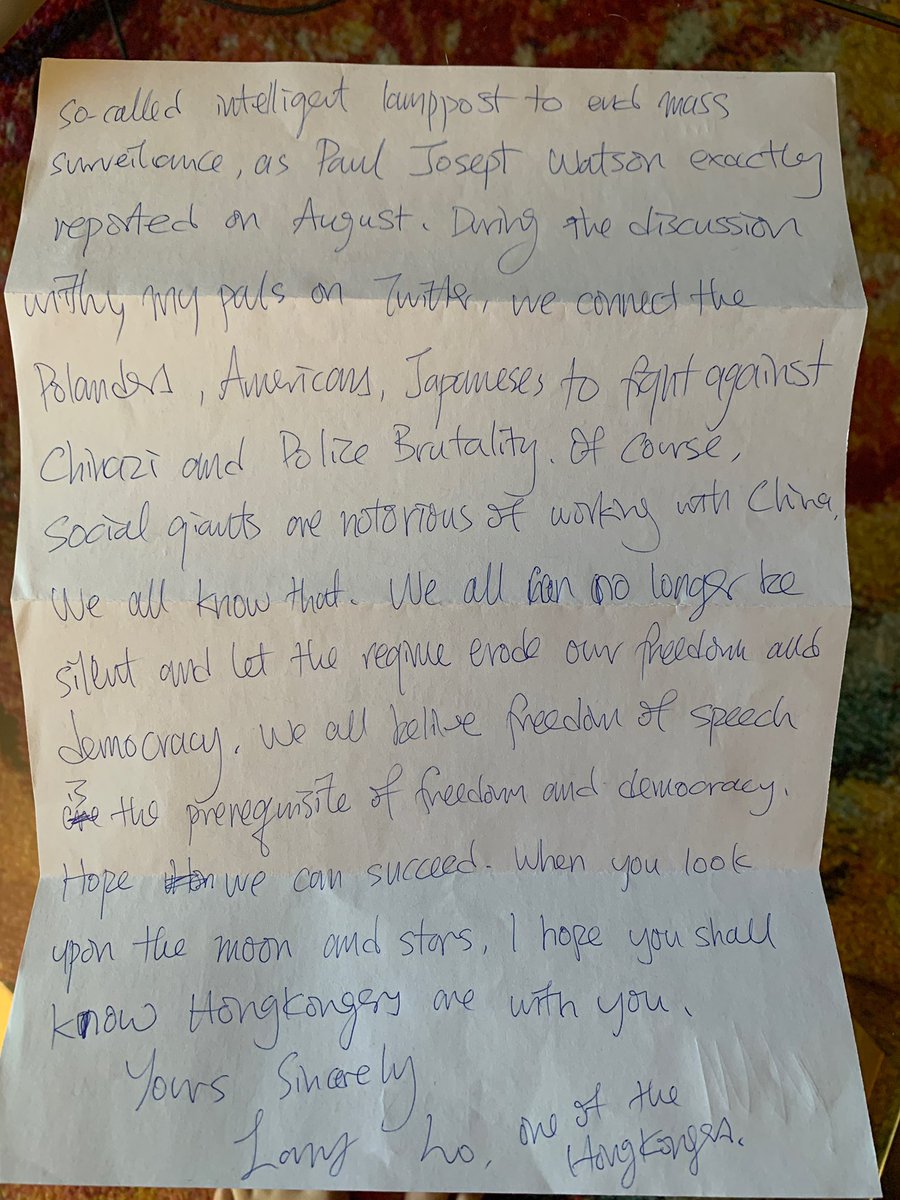 so-called intelligent lamppost to end mass
surveilance, as Paul Josept Watson exactly
reported on August. During the discussion
withy my pals on Twitter, we connect the
Polanders, Americans, Japaneses to fight against
Chinazi and Police Brutality. Of course,
social giants are notorious of working with China.
We all know that. We all can no longer be
silent and let the regime erode our freedom and
democracy. We all belive freedom of speech
is the prerequisite of freedom and democracy.
Hope we can succeed. When you look
upon the moon and stars, I hope you shall
know Hongkongers are with you.
Yours Sincerely
Lo, one of the
Hongkongers.